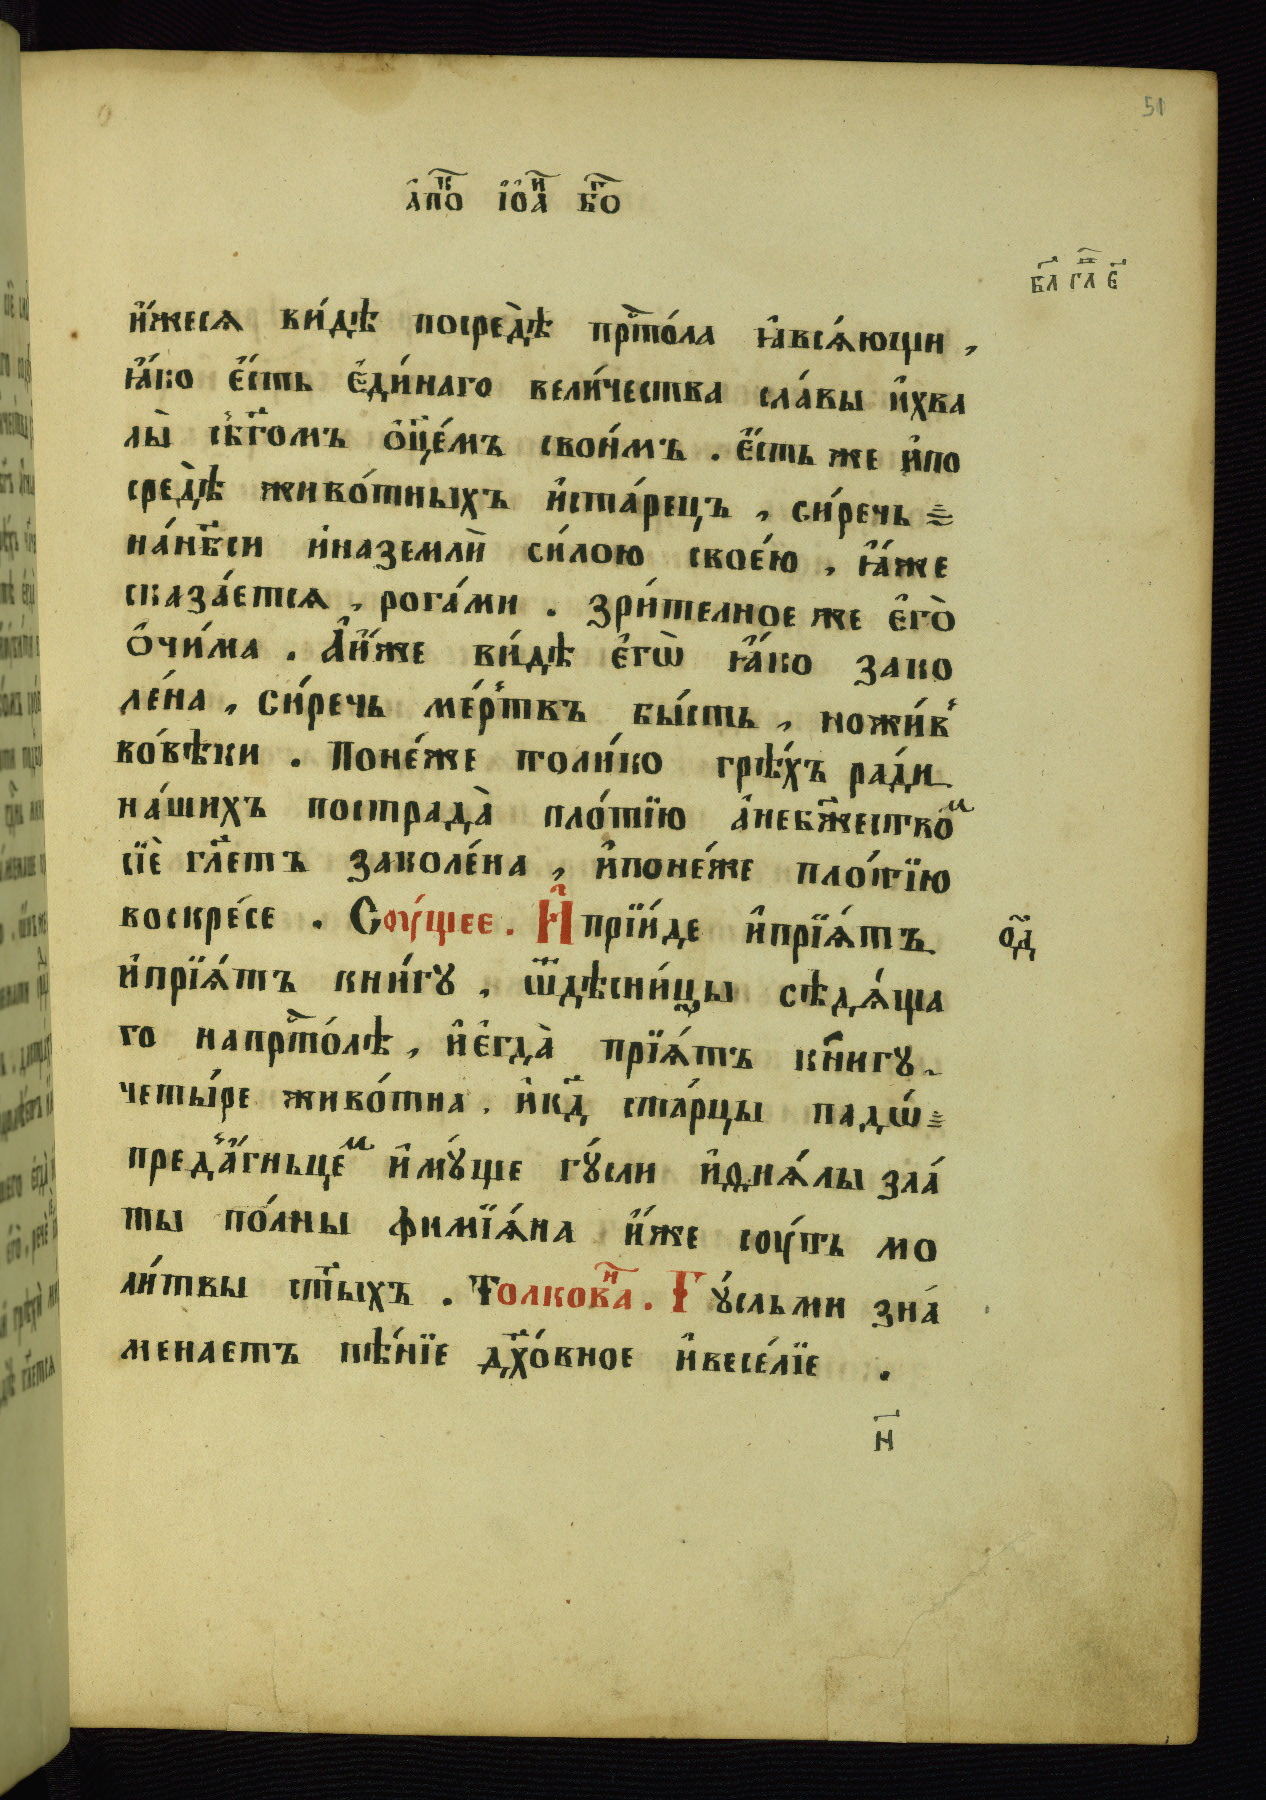 51
а҆по҇к і҆ѻ҆а҇н бо҇г
в҃л гл҃ є҃
и҆́жесѧ ви́дѣ посре́дѣ прⷭ҇то́ла ꙗ҆всѧ́ющи ,
ꙗ҆́ко є҆́сть є҆ди́наго вели́чества сла́вы и҆хва
лы̀ сбг҃омъ ѻ҆ц҃е́мъ свои́мъ . є҆́сть же и҆по
сре́дѣ живо́тныхъ и҆ста́рецъ , си́речь
на́нб҃си и҆наземлѝ си́лою свое́ю , ꙗ҆́же
сказа́етсѧ , рога́ми . зри́телное же є҆го̀
ѻ҆чи́ма . А҆и҆́же ви́дѣ є҆гѡ̀ ꙗ҆́ко зако
ле́на , си́речь ме́ртвъ бы́сть , ножи́в
вовѣ́ки . Поне́же толи́ко грѣ́хъ ра́ди
на́шихъ пострада̀ пло́тїю а҆небж҃ество́м
сїѐ гл҃етъ заколе́на , и҆поне́же пло́тїю
воскре́се . Соу́щее . И҆ прїи́де и҆прїѧ́тъ
ѻ҃д
и҆прїѧ́тъ кни́гу , ѿдѣсни́цы сѣдѧ́ща
го напрⷭ҇то́лѣ , и҆є҆гда̀ прїѧ́тъ кни́гу ,
четы́ре живо́тна , и҆кд҃ ста́рцы падѡ́
преда҆́гньце́м и҆му́ще гу́сли и҆фиѧ́лы зла́
ты по́лны фимїѧ́на и҆́же соу́ть мо
ли́твы ст҃ыхъ . Толкова҇н . Гу́сльми зна́
менаетъ пѣ́нїе дх҃о́вное и҆весе́лїе .
н҃